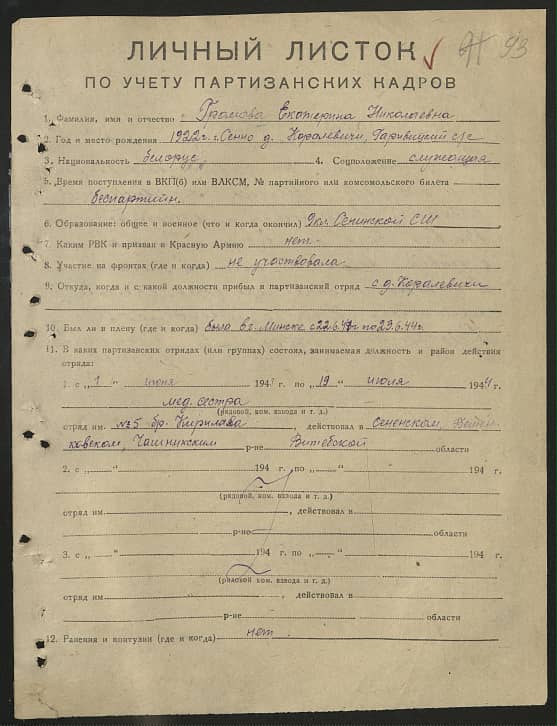 93
ЛИЧНЫЙ ЛИСТОК
ПО УЧЕТУ ПАРТИЗАНСКИХ КАДРОВ
1. Фамилия, имя и отчество: Громова Екатерина Николаевна
2. Год и место рождения 1922 г. г. Сенно д. Королевичи, с/с
3. Национальность белорус 4. Соцположение служащая
5. Время поступления в ВКП(б) или ВЛКСМ, № партийного или комсомольского билета
беспартийн.
6. Образование: общее и военное (что и когда окончил) 9 кл. Сенинской СШ
7. Каким РВК и призван в Красную Армию нет
8. Участие на фронтах (где и когда) не участвовала
9. Откуда, когда и с какой должности прибыл в партизанский отряд с д. Королевичи
10. Был ли в плену (где и когда) была в г. Минске с 22.6. по 23.6.44г.
11. В каких партизанских отрядах (или группах) состоял, занимаемая должность и район действия
отряда:
1. с „ 1 “ июня 194 г. по „ 19 “ июля 1944 г.
мед. сестра
(рядовой, ком. взвода и т. д.)
отряд им. №5 бр. Кирилова, действовал в Сененском,
ковском, Чашникским р-не Витебской области
2. с „ “ 194 г. по „ “ 194 г.
(рядовой, ком. взвода и т. д.)
отряд им , действовал в
р-но области
3. с „ “ 194 г. по „ “ 194 г.
(рядовой ком. взвода и т. д.)
отряд им , действовал в
р-не области
12. Ранения и контузии (где и когда) нет